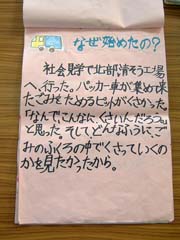 なぜ始めたの?
社会見学で北部清そう工場
へ行った。パッカー車が集めて来
たごみをためるピットがくさかった。
「なんで、こんなに、くさいんだろう。」
と思った。そしてどんなふうに、ご
みのふくろの中でくさっていくの
かを見たかったから。